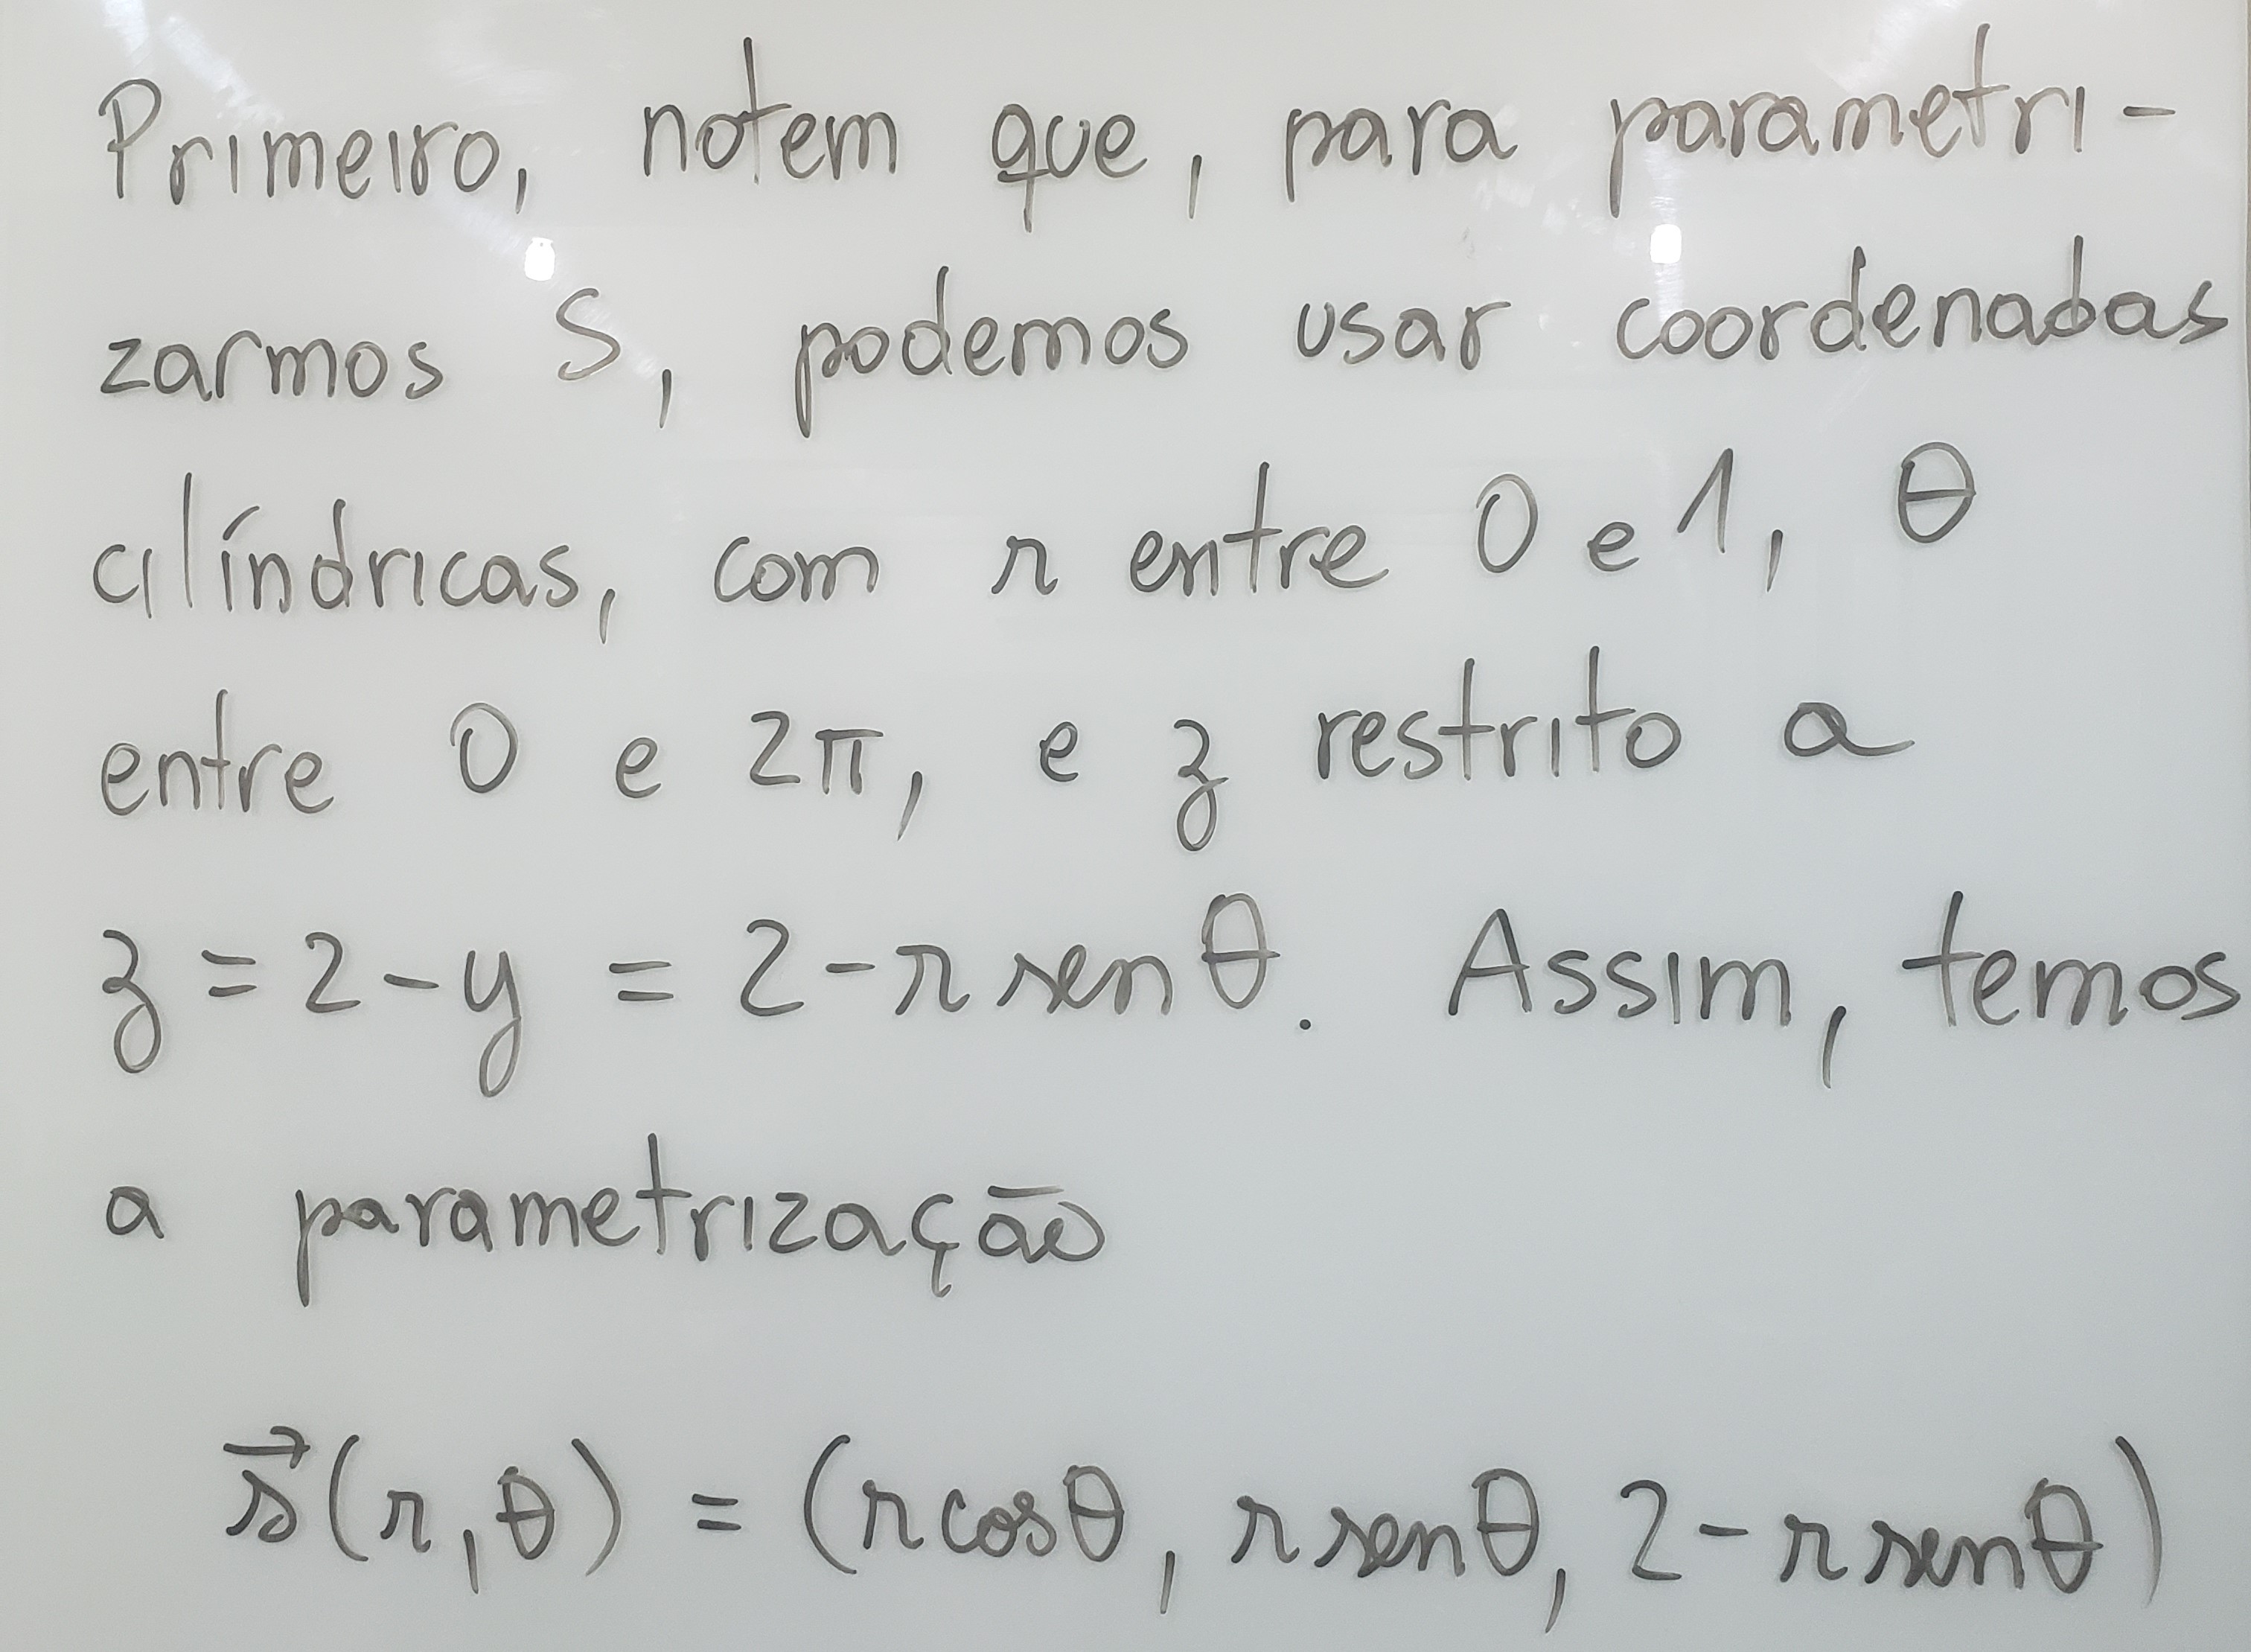 Primeiro, notem que, para parametri-
zarmos S, podemos usar coordenadas
cilíndricas, com r entre 0 e 1, θ
entre 0 e 2π, e z restrito a
z = 2 - y = 2 - r sen θ. Assim, temos
a parametrização
s⃗(r, θ) = (r cos θ, r sen θ, 2 - r sen θ)